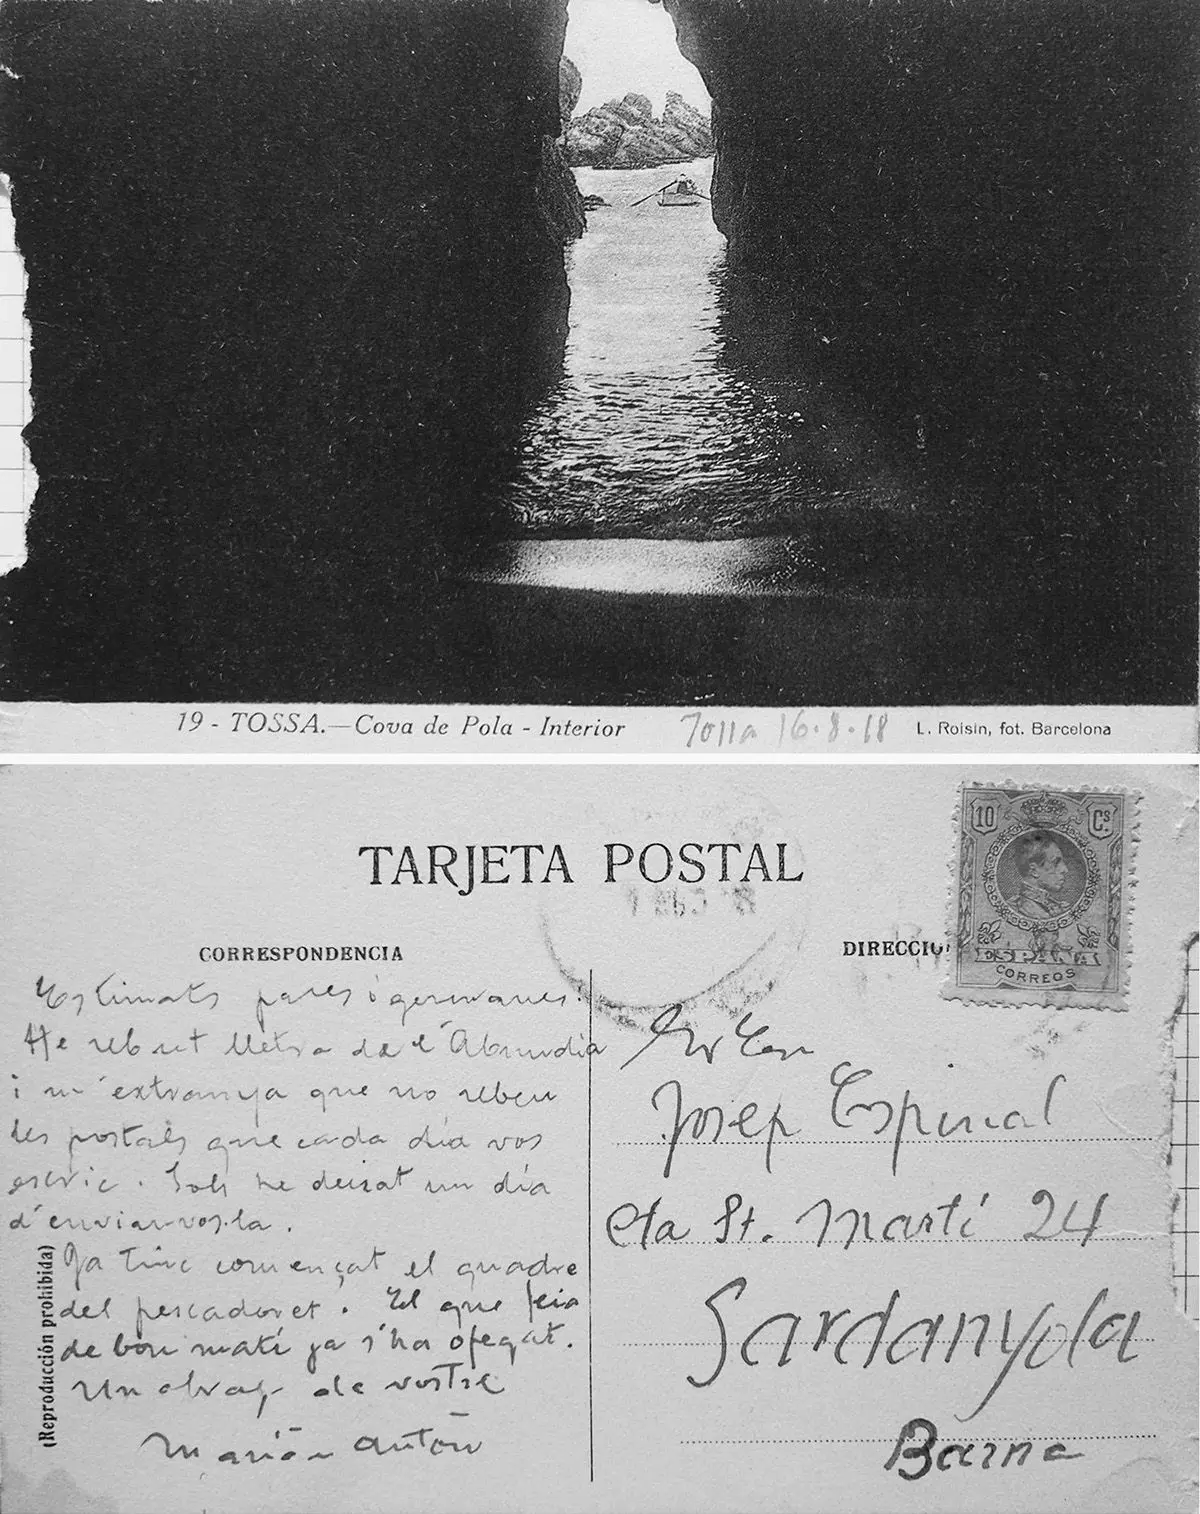 19 - TOSSA.—Cova de Pola - Interior
Tossa 16-8-18
L. Roisin, fot. Barcelona
TARJETA POSTAL
CORRESPONDENCIA
DIRECCIÓ
10 Cs
ESPAÑA
CORREOS
Estimats pares i germanes:
He rebut lletra de l'Abundia
i m'extranya que no rebeu
les postals que cada dia vos
escric. Sols he deixat un dia
d'enviar-vos-la.
Ja tinc començat el quadre
del pescadoret. El que feia
de bon matí ja s'ha ofegat.
Un abraç de vostre
Marián Antón
(Reproducción prohibida)
Josep Espinal
Cta St. Martí 24
Sardanyola
Barna